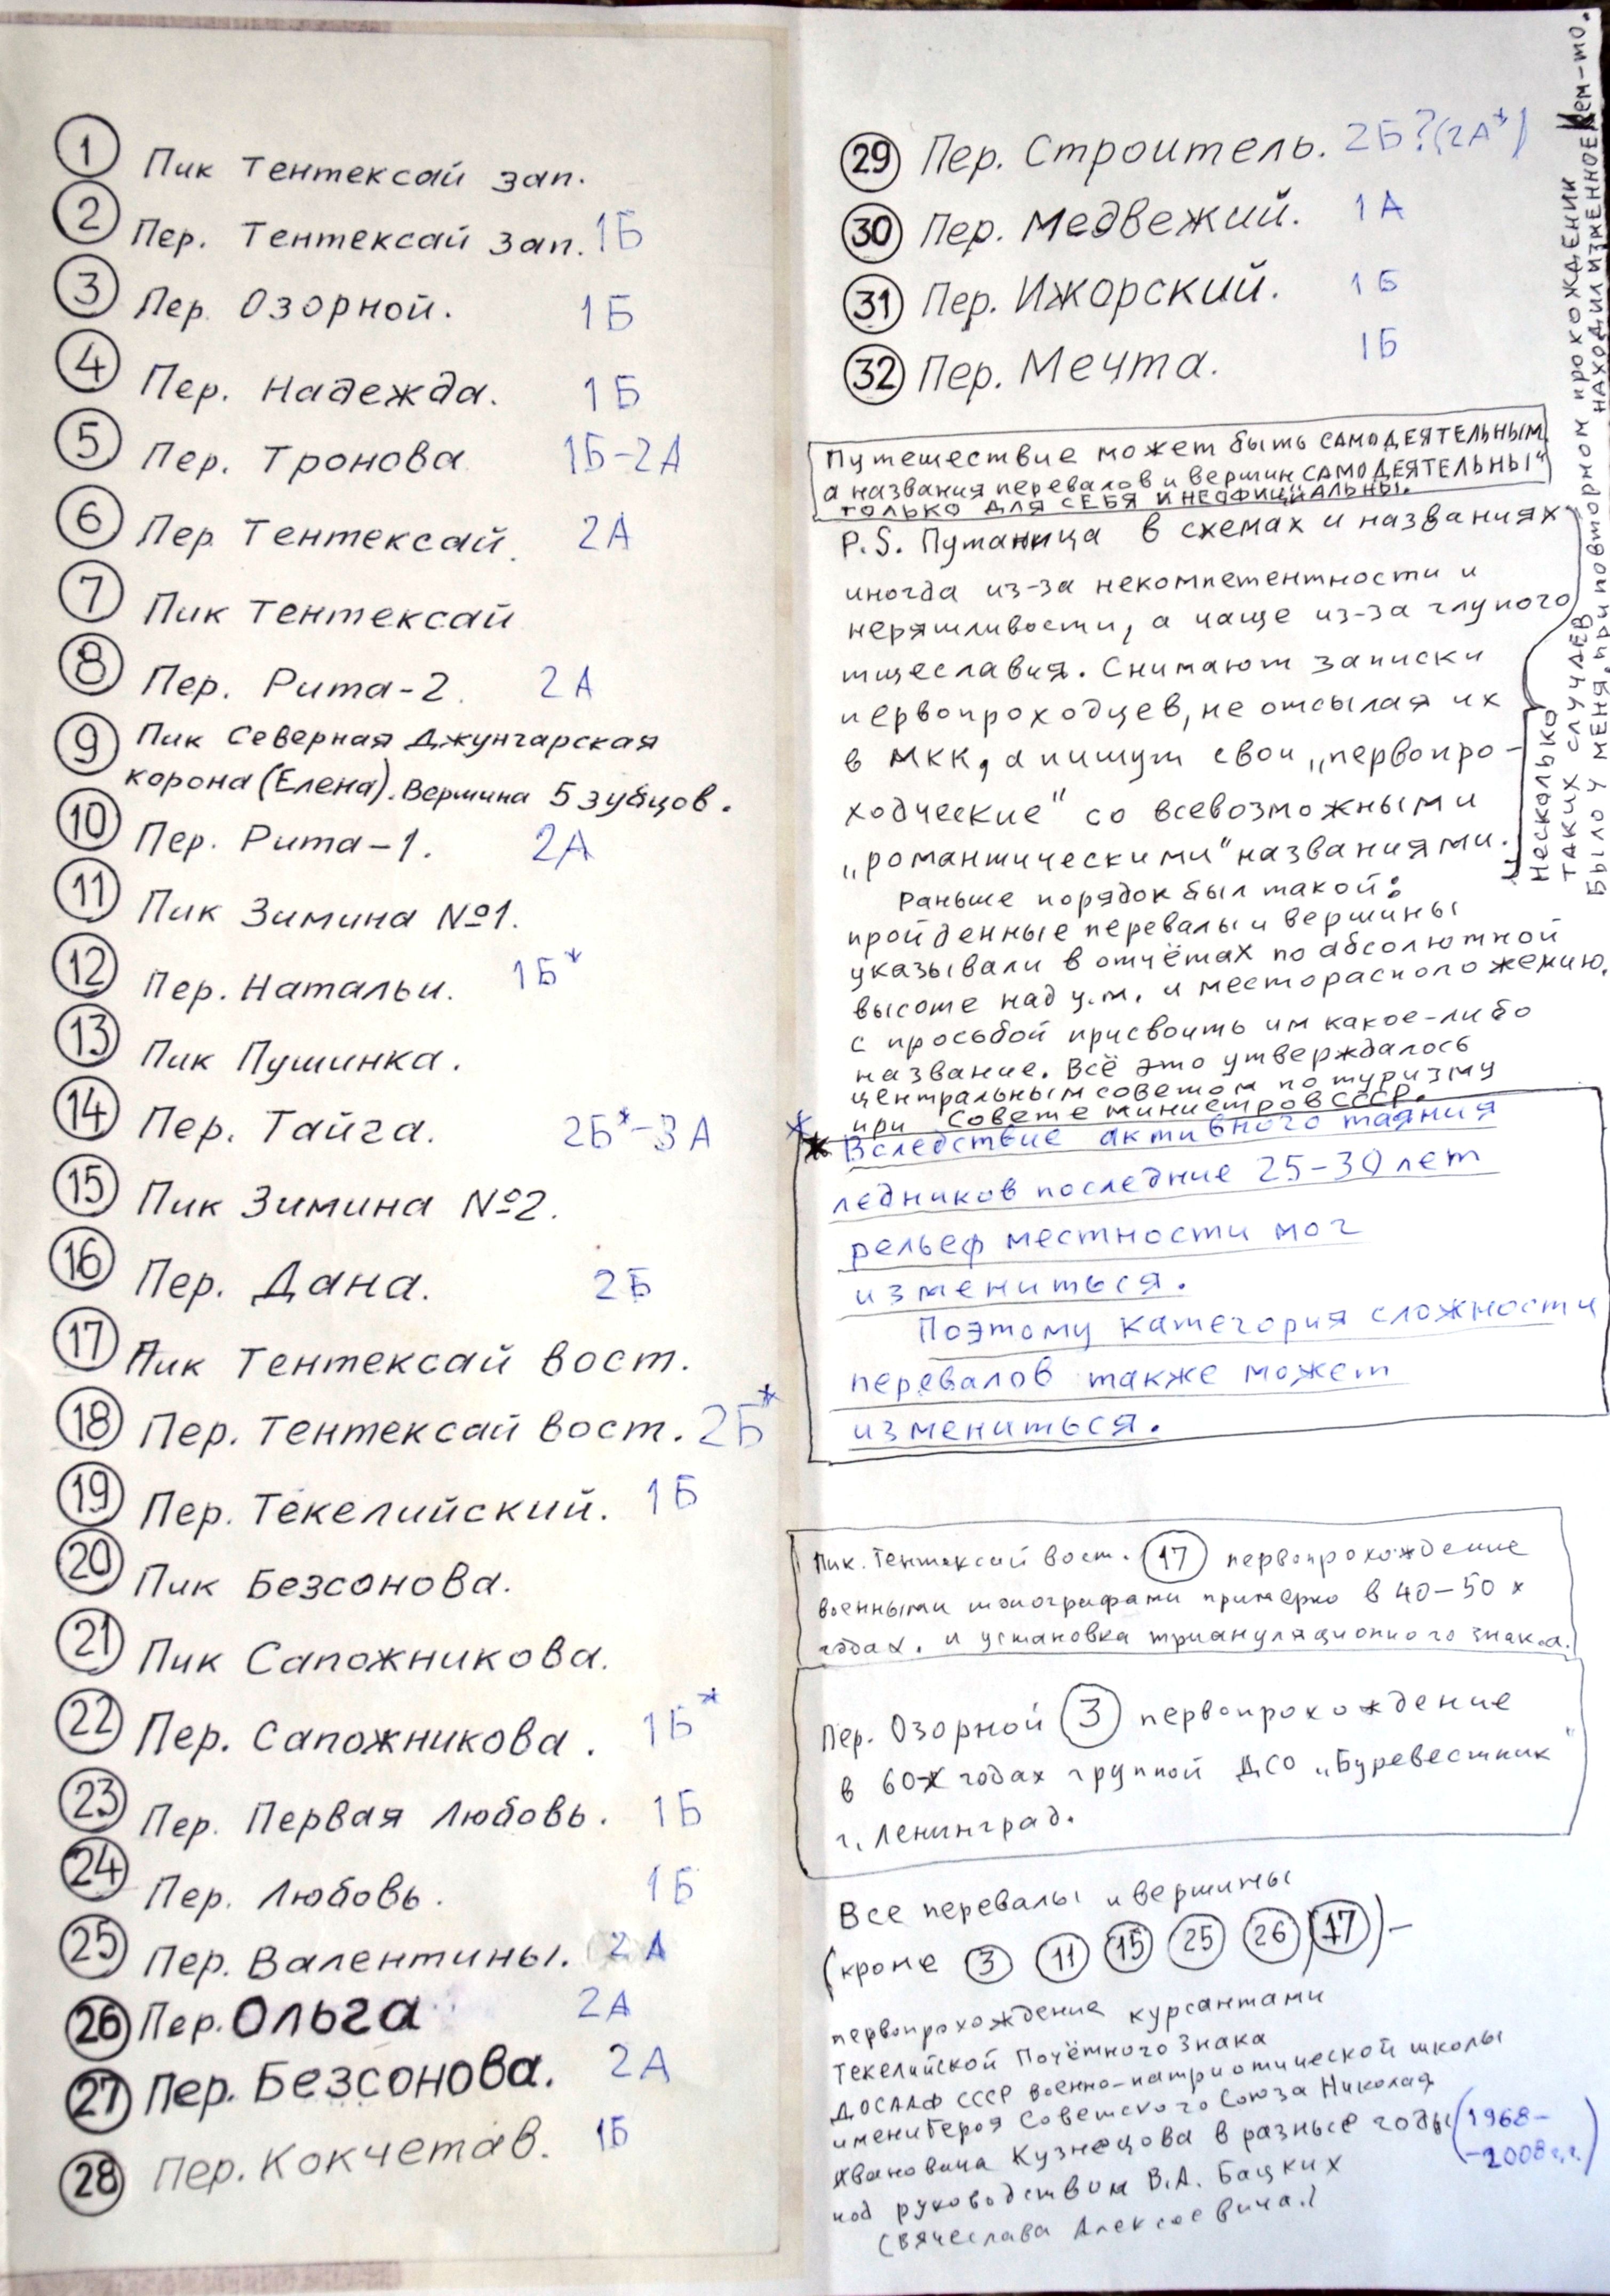 1 Пик Тентексай зап.
2 Пер. Тентексай зап. 1Б
3 Пер. Озорной. 1Б
4 Пер. Надежда. 1Б
5 Пер. Тронова 1Б-2А
6 Пер Тентексай. 2А
7 Пик Тентексай
8 Пер. Рита-2. 2А
9 Пик Северная Джунгарская
корона (Елена). Вершина 5 зубцов.
10 Пер. Рита-1. 2А
11 Пик Зимина №1.
12 Пер. Натальи. 1Б*
13 Пик Пушинка.
14 Пер. Тайга. 2Б*-3А
15 Пик Зимина №2.
16 Пер. Дана. 2Б
17 Пик Тентексай вост.
18 Пер. Тентексай вост. 2Б*
19 Пер. Текелийский. 1Б
20 Пик Безсонова.
21 Пик Сапожникова.
22 Пер. Сапожникова. 1Б*
23 Пер. Первая Любовь. 1Б
24 Пер. Любовь. 1Б
25 Пер. Валентины. 2А
26 Пер. Ольга 2А
27 Пер. Безсонова. 2А
28 Пер. Кокчетав. 1Б
29 Пер. Строитель. 2Б?(2А*)
30 Пер. Медвежий. 1А
31 Пер. Ижорский. 1Б
32 Пер. Мечта. 1Б
Путешествие может быть САМОДЕЯТЕЛЬНЫМ,
а названия перевалов и вершин „САМОДЕЯТЕЛЬНЫ"
ТОЛЬКО ДЛЯ СЕБЯ И НЕОФИЦИАЛЬНЫ.
P.S. Путаница в схемах и названиях
иногда из-за некомпетентности и
неряшливости, а чаще из-за глупого
тщеславия. Снимают записки
первопроходцев, не отсылая их
в МКК, а пишут свои „первопро-
ходческие" со всевозможными
„романтическими" названиями.
Несколько
ТАКИХ СЛУЧАЕВ
БЫЛО У МЕНЯ, при повторном прохождении
НАХОДИЛ ИЗМЕНЁННОЕ Кем-то.
Раньше порядок был такой:
пройденные перевалы и вершины
указывали в отчётах по абсолютной
высоте над у.м. и месторасположению.
с просьбой присвоить им какое-либо
название. Всё это утверждалось
центральным советом по туризму
при Совете министров СССР.
* Вследствие активного таяния
ледников последние 25-30 лет
рельеф местности мог
измениться.
Поэтому категория сложности
перевалов также может
измениться.
Пик. Тентексай вост. 17 первопрохождение
военными топографами примерно в 40-50 х
годах. и установка триануляционного знака.
Пер. Озорной 3 первопрохождение
в 60-х годах группой ДСО „Буревестник"
г. Ленинград.
Все перевалы и вершины
(кроме 3 11 15 25 26 17) -
первопрохождение курсантами
Текелийской Почётного Знака
ДОСААФ СССР военно-патриотической школы
имени Героя Советского Союза Николая
Ивановича Кузнецова в разные годы (1968-
-2008 г.г.)
под руководством В.А. Бацких
(Вячеслава Алексеевича.)